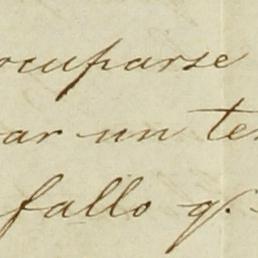 ocuparse
ar un te
fallo q.